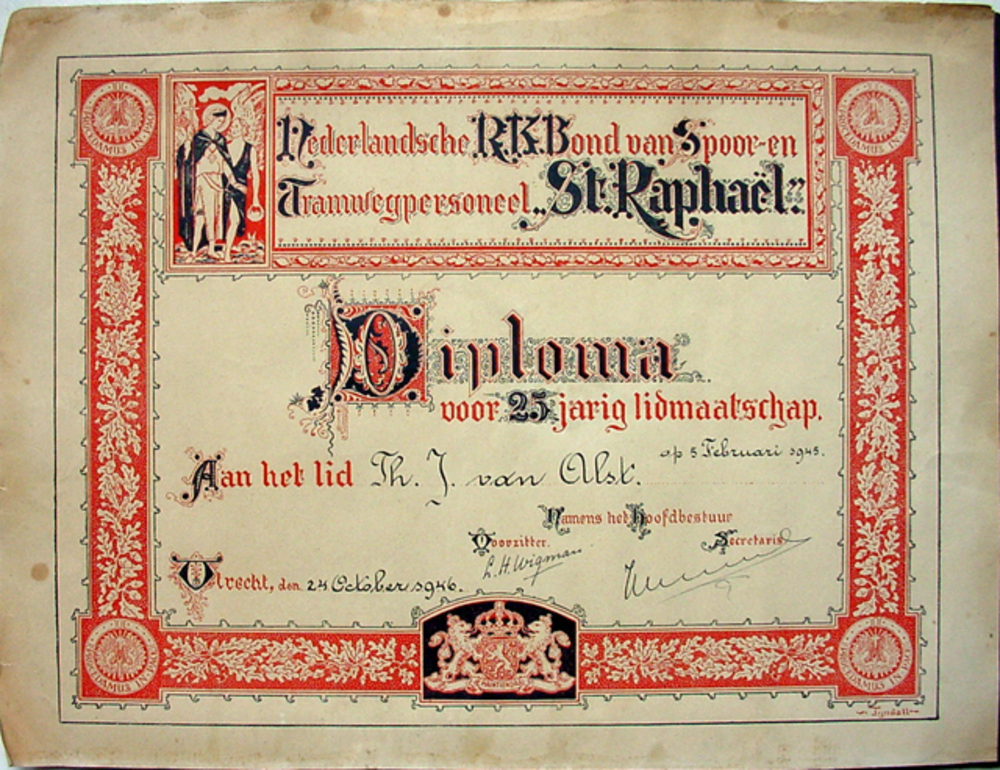 Nederlandsche R.K. Bond van Spoor- en
Tramwegpersoneel „St. Raphaël.”
Diploma
voor 25 jarig lidmaatschap.
op 5 Februari 1945.
Aan het lid Th. J. van Alst.
Namens het Hoofdbestuur
Voorzitter. Secretaris.
L. H. Wigman
Utrecht, den 24 October 1946.